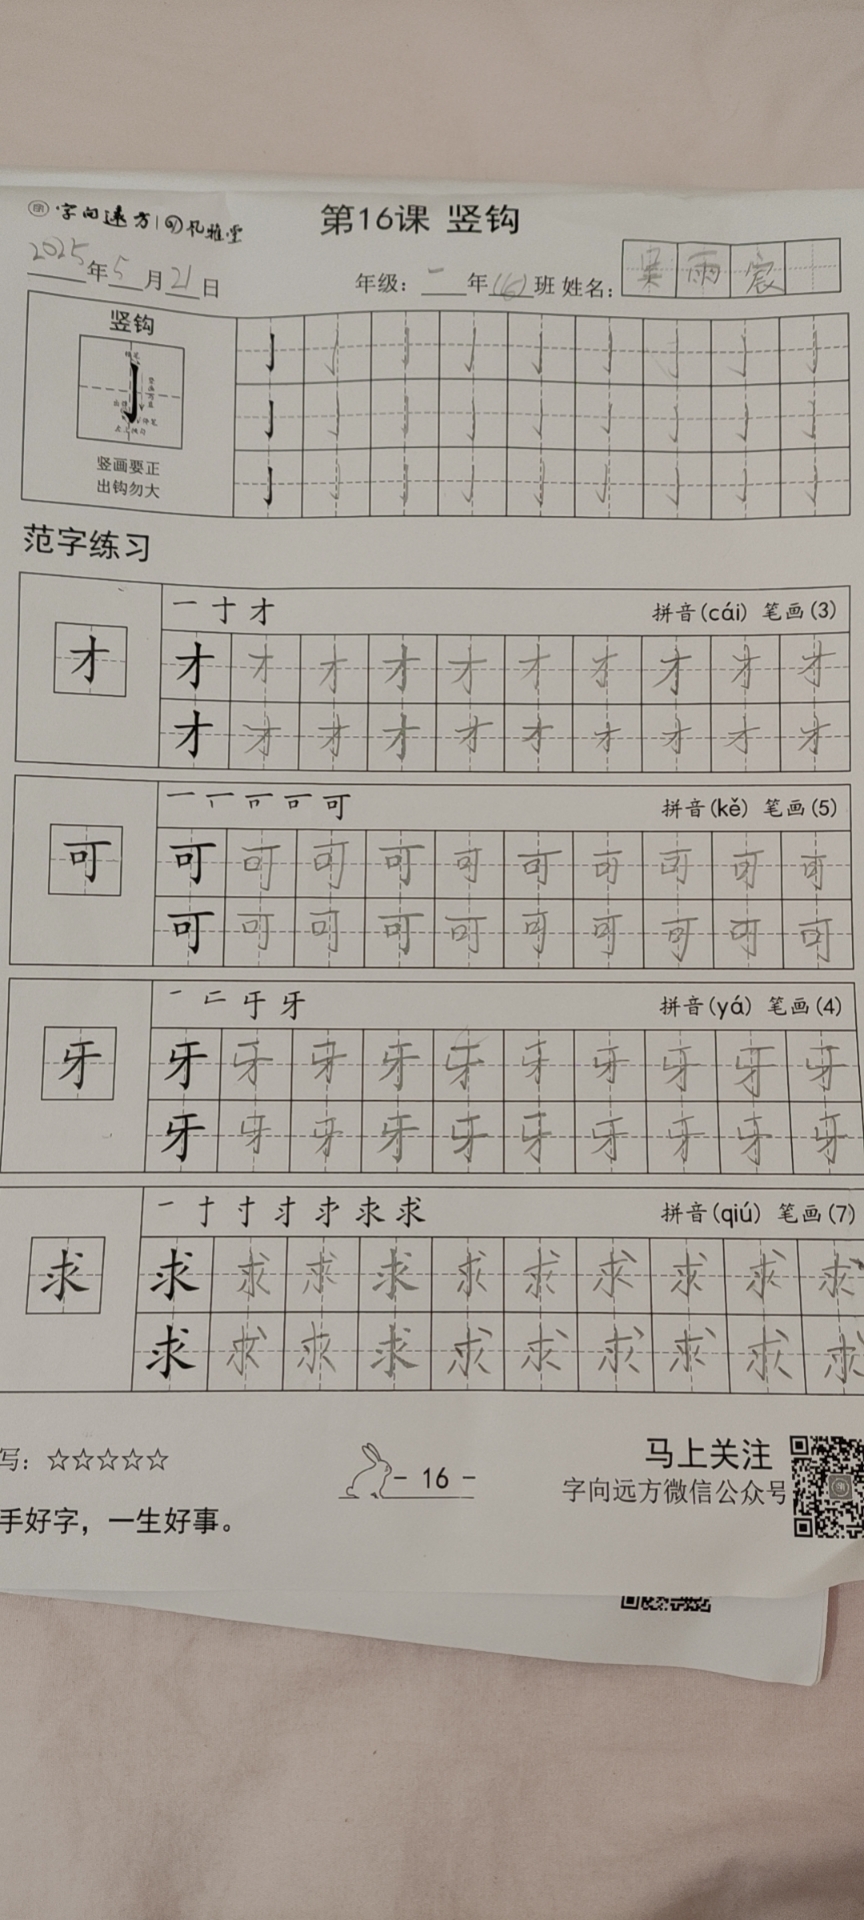 字向远方 孔雅堂
第16课 竖钩
2025年5月21日
年级：一年(6)班 姓名：吴雨宸
竖钩
竖画要正
出钩勿大
范字练习
一 十 才 拼音(cái) 笔画(3)
才 才 才 才 才 才 才 才 才 才 才
才 才 才 才 才 才 才 才 才 才
可 拼音(kě) 笔画(5)
可 可 可 可 可 可 可 可 可 可 可
可 可 可 可 可 可 可 可 可 可
牙 拼音(yá) 笔画(4)
牙 牙 牙 牙 牙 牙 牙 牙 牙 牙 牙
牙 牙 牙 牙 牙 牙 牙 牙 牙 牙
求 拼音(qiú) 笔画(7)
求 求 求 求 求 求 求 求 求 求 求
求 求 求 求 求 求 求 求 求 求
写：☆☆☆☆☆
- 16 -
马上关注
字向远方微信公众号
手好字，一生好事。